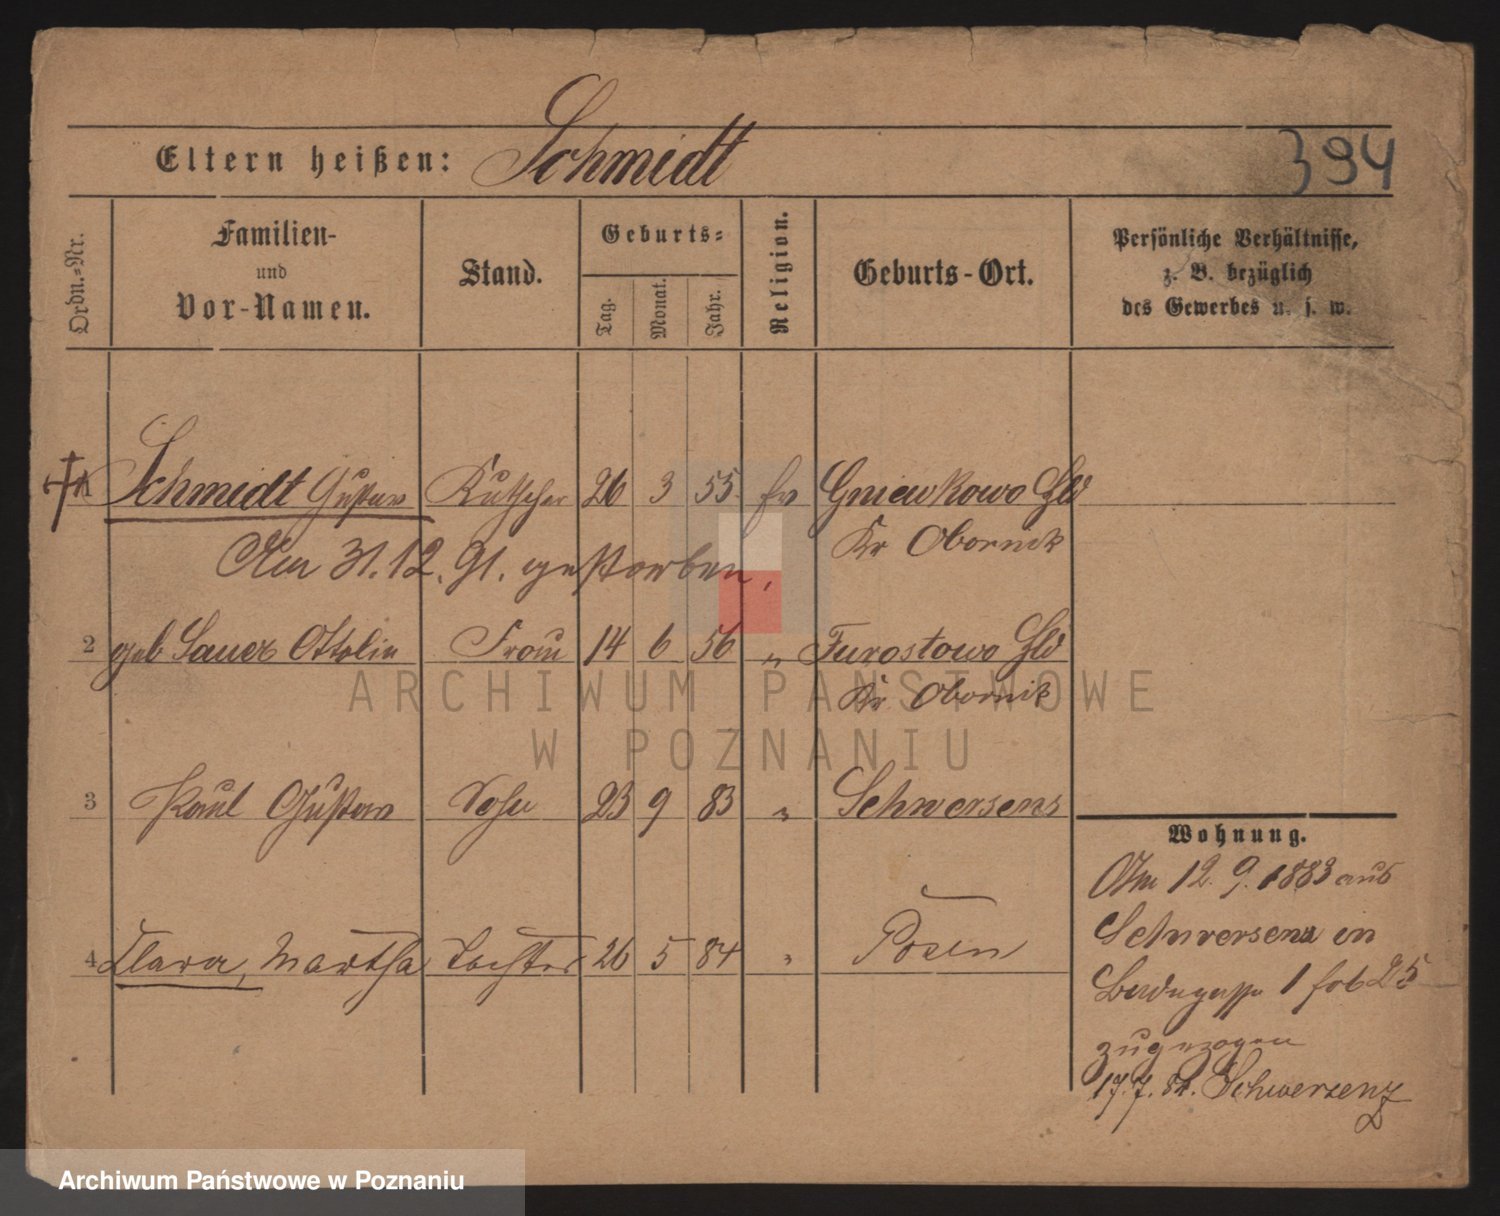 Eltern heißen: Schmidt
394
Ordn.-Nr.
Familien-
und
Vor-Namen.
Stand.
Geburts-
Tag.
Monat.
Jahr.
Religion.
Geburts-Ort.
Persönliche Verhältnisse,
z. B. bezüglich
des Gewerbes u. s. w.
1 Schmidt Gustav Kutscher 26 3 55 Gniewkowo
Kr Obornik
Am 31.12.91. gestorben.
2 geb Sauer Ottolie Frau 14 6 56 "
Kr Obornik
3 Paul Gustav Sohn 23 9 83 " Schwersenz
Wohnung.
Am 12. 9. 1883 aus
Schwersenz in
1 25
zugezogen
17.7.84. Schwersenz
4 Clara, Martha Tochter 26 5 84 " Posen
ARCHIWUM PAŃSTWOWE
W POZNANIU
Archiwum Państwowe w Poznaniu